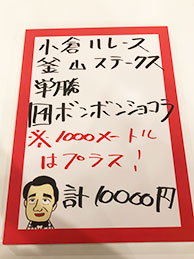 小倉11レース
釜山ステークス
単勝
14ボンボンショコラ
※1000メートル
はプラス！
計10000円